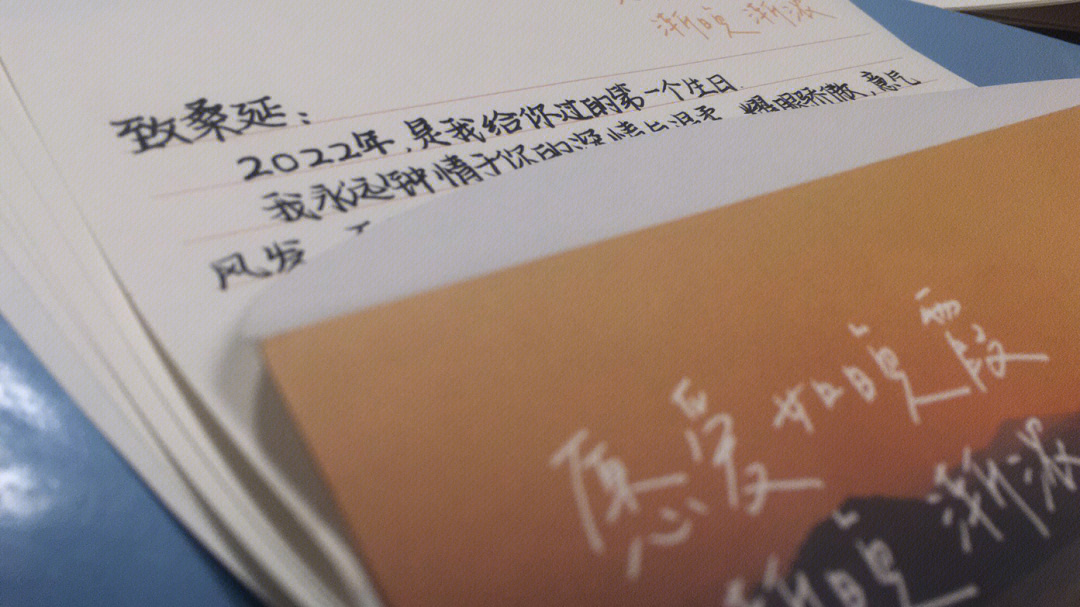 渐晚渐浓
致桑延：
2022年，是我给你过的第一个生日.
我永远钟情于你的深情与温柔，耀眼骄傲，意气
风发
愿爱如晚霞
渐晚渐浓